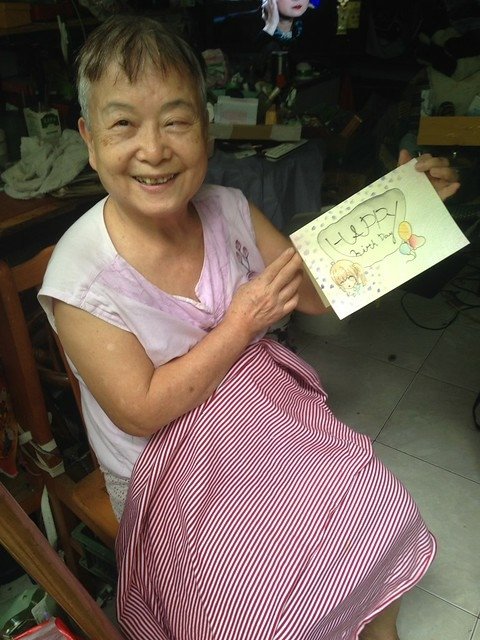 HAPPY
birth Day